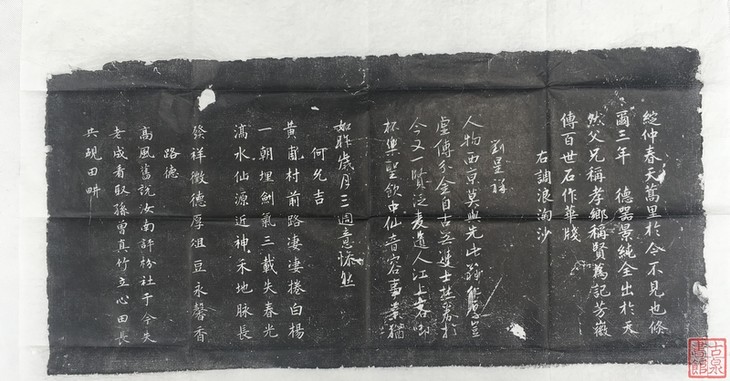 綻仲春天萬里於今不見也倏
爾三年 德器景純全出於天
然父兄稱孝鄉稱賢為記芳徽
傳百世石作華牋
右調浪淘沙
劉星祥
人物西京莫與先豈
虛傳金自古進士著於
今又一賢泛麦道人江上春
杯樂聖飲中仙音容事業猶
如昨歲月三週意
何允吉
黃甫村前路淒淒捲白楊
一朝埋劍氣三載失春光
滈水仙源近神禾地脉長
發祥徵德厚俎豆永馨香
路德
高風舊說汝南評枌社于今失
老成看取孫曾真竹立心田長
共硯田畊
古泉書館